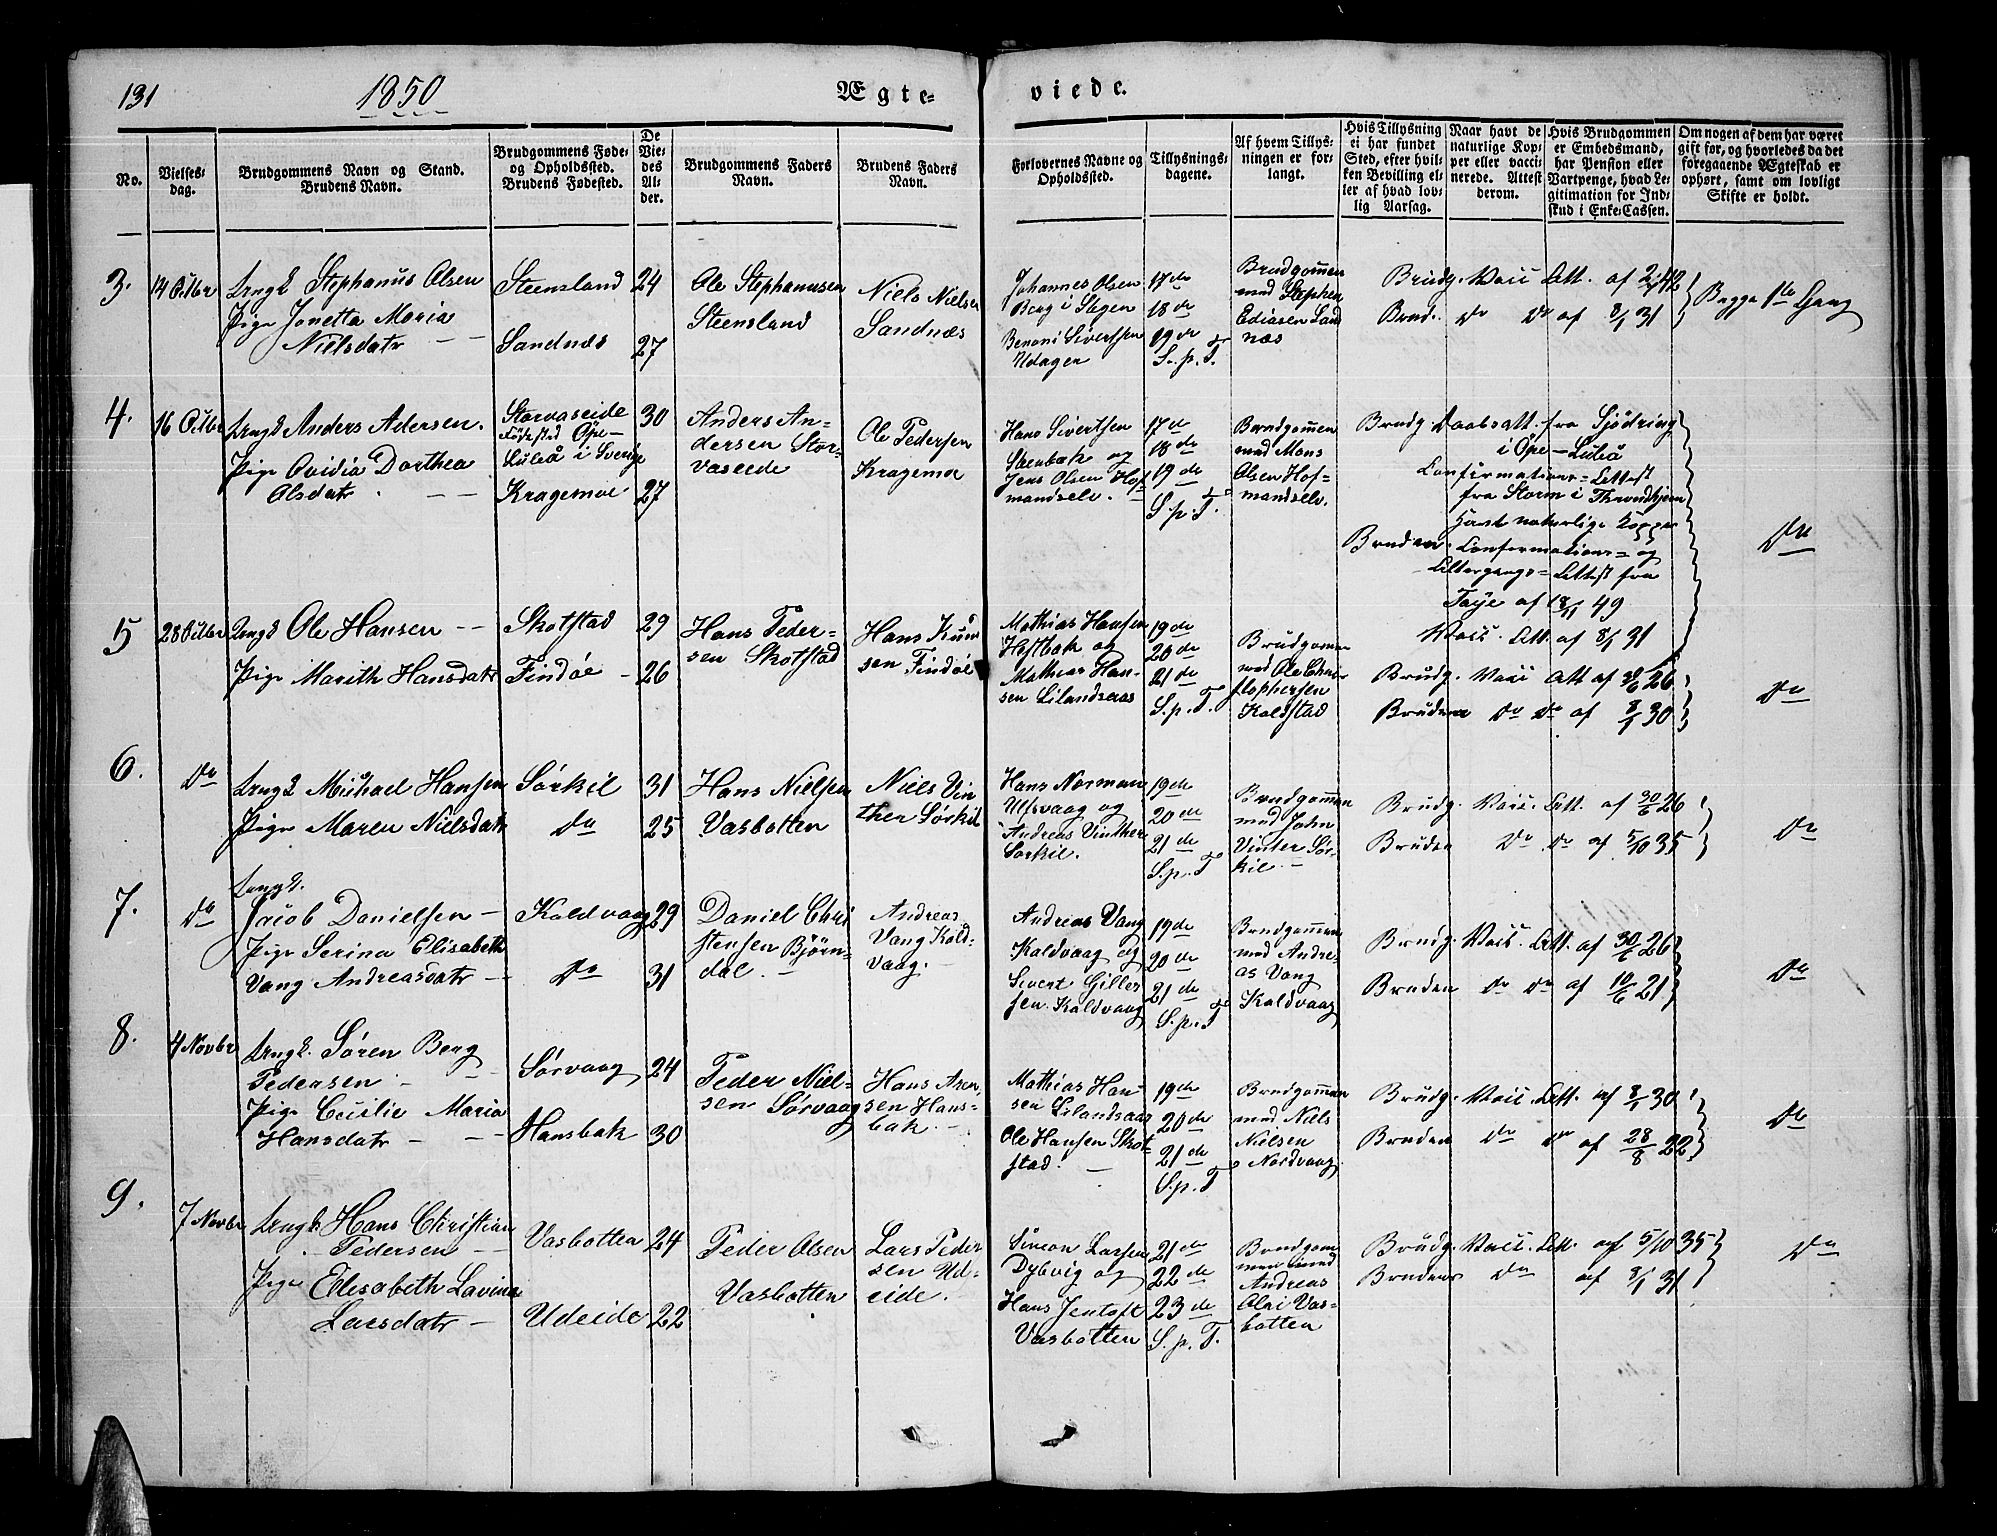 131
1850
Ægte=
viede.
No.
Vielses=
dag.
Brudgommens Navn og Stand.
Brudens Navn.
Brudgommens Føde=
og Opholdssted.
Brudens Fødested.
De
Vie=
des
Al=
der.
Brudgommens Faders
Navn.
Brudens Faders
Navn.
Forlovernes Navne og
Opholdssted.
Tillysnings=
dagene.
Af hvem Tillys=
ningen er for=
langt.
Hvis Tillysning
ei har fundet
Sted, efter hvil=
ken Bevilling el=
ler af hvad lov=
lig Aarsag.
Naar havt de
naturlige Kop=
per eller vacci=
nerede. Attest
derom.
Hvis Brudgommen
er Embedsmand,
har Pension eller
Vartpenge, hvad Le=
gitimation for Ind=
skud i Enke=Cassen.
Om nogen af dem har været
gift før, og hvorledes da det
foregaaende Ægteskab er
ophørt, samt om lovligt
Skifte er holdt.
3.
14 Octbr
Ungk Stephanus Olsen
Pige Jonetta Maria
Nielsdatr
Steensland
Sandnæs
24
27
Ole Stephanusen
Steensland
Niels Nielsen
Sandnæs
Johannes Olsen
Berg i Stegen
Benoni Sivertsen
Udager
17de
18de
19de
S. p. T.
Brudgommen
med Stephen
Ediasen Sand
næs
Brudg. Vacc Att. af
Brud. Do Do af 8/1 31
Begge 1te Gang
4.
16 Octbr
Ungk Anders Adersen.
Pige Ovidia Dorthea
Olsdatr
Storvaseide
Fødested Öpe-
Luleå i Sverige
Kragemoe
30
27
Anders An=
dersen Stor=
vaseide
Ole Pedersen
Kragemoe
Hans Sivertsen
Steenbak og
Jens Olsen Hof=
mandselv.
17de
18de
19de
S. p. T.
Brudgommen
med Mons
Olsen Hof=
mandselv.
Brudg. Daabsatt. fra Sjödring
i Öpe-Luleå
Confirmations=Attest
fra Storm i Throndhjem
Havt naturlige Kopper
Bruden. Confirmations= og
Altergangs=Attest fra
Taye af 18/11 49
Vacc. Att. af 8/1 31
Do
5
28 Octbr
Ungk Ole Hansen --
Pige Marith Hansdatr
Skotstad
Findöe
29
26
Hans Peder=
sen Skotstad
Hans Knud
sen Findöe
Mathias Hansen
Hestbak og
Mathias Han=
sen Lilandsaas
19de
20de
21de
S. p. T.
Brudgommen
med Ole Chri
stophersen
Kaldstad
Brudg. Vacc Att af 30/6 26
Bruden Do Do af 8/1 30
Do
6.
Do
Ungk Michael Hansen
Pige Maren Nielsdatr
Sörkil
Do
31
25
Hans Nielsen
Vasbotten
Niels Vin
ther Sörkil
Hans Norman
Ulfsvaag og
Andreas Vinther
Sörkil.
19de
20de
21de
S. p. T
Brudgommen
med John
Vinter Sör=
kil. -
Brudg. Vacc. Att. af 30/6 26
Bruden Do Do af 5/10 35
Do
7.
Do
Ungk.
Jacob Danielsen -
Pige Serina Elisabeth
Vang Andreasdatr -
Kaldvaag
Do
29
31
Daniel Chri
stensen Björn=
dal. -
Andreas
Vang Kald=
vaag. -
Andreas Vang
Kaldvaag og
Sivert Gille
sen. Kaldvaag
19de
20de
21de
S. p. T
Brudgommen
med Andre=
as Vang
Kaldvaag
Brudg. Vacc. Att. af 30/6 26
Bruden Do Do af 10/6 21
Do
8.
4 Novbr
Ungk. Sören Berg
Pedersen
Pige Cecilie Maria
Hansdatr
Sörvaag
Hansbak
24
30
Peder Niel=
sen Sörvaag
Hans Aren
sen Hans=
bak.
Mathias Han
sen Lilandsaas
Ole Hansen Skot=
stad.
19de
20de
21de
S. p. T
Brudgommen
med Niels
Nielsen
Nordvaag
Brudg. Vacc. Att. af 8/1 30
Bruden Do Do af 28/8 22
Do
9.
7 Novbr
Ungk. Hans Christian
Pedersen
Pige Elisabeth Lavina
Larsdatr -
Vasbotten
Udeide
24
22
Peder Olsen
Vasbotten
Lars Peder
sen Ud=
eide.
Simeon Larsen
Dybvig og
Hans Jentoft
Vasbotten
21de
22de
23de
S. p. T.
Brudgom
men med
Andreas
Vas=
botten
Brudg. Vacc. Att. af 5/10 35
Bruden Do af 8/1 31
Do